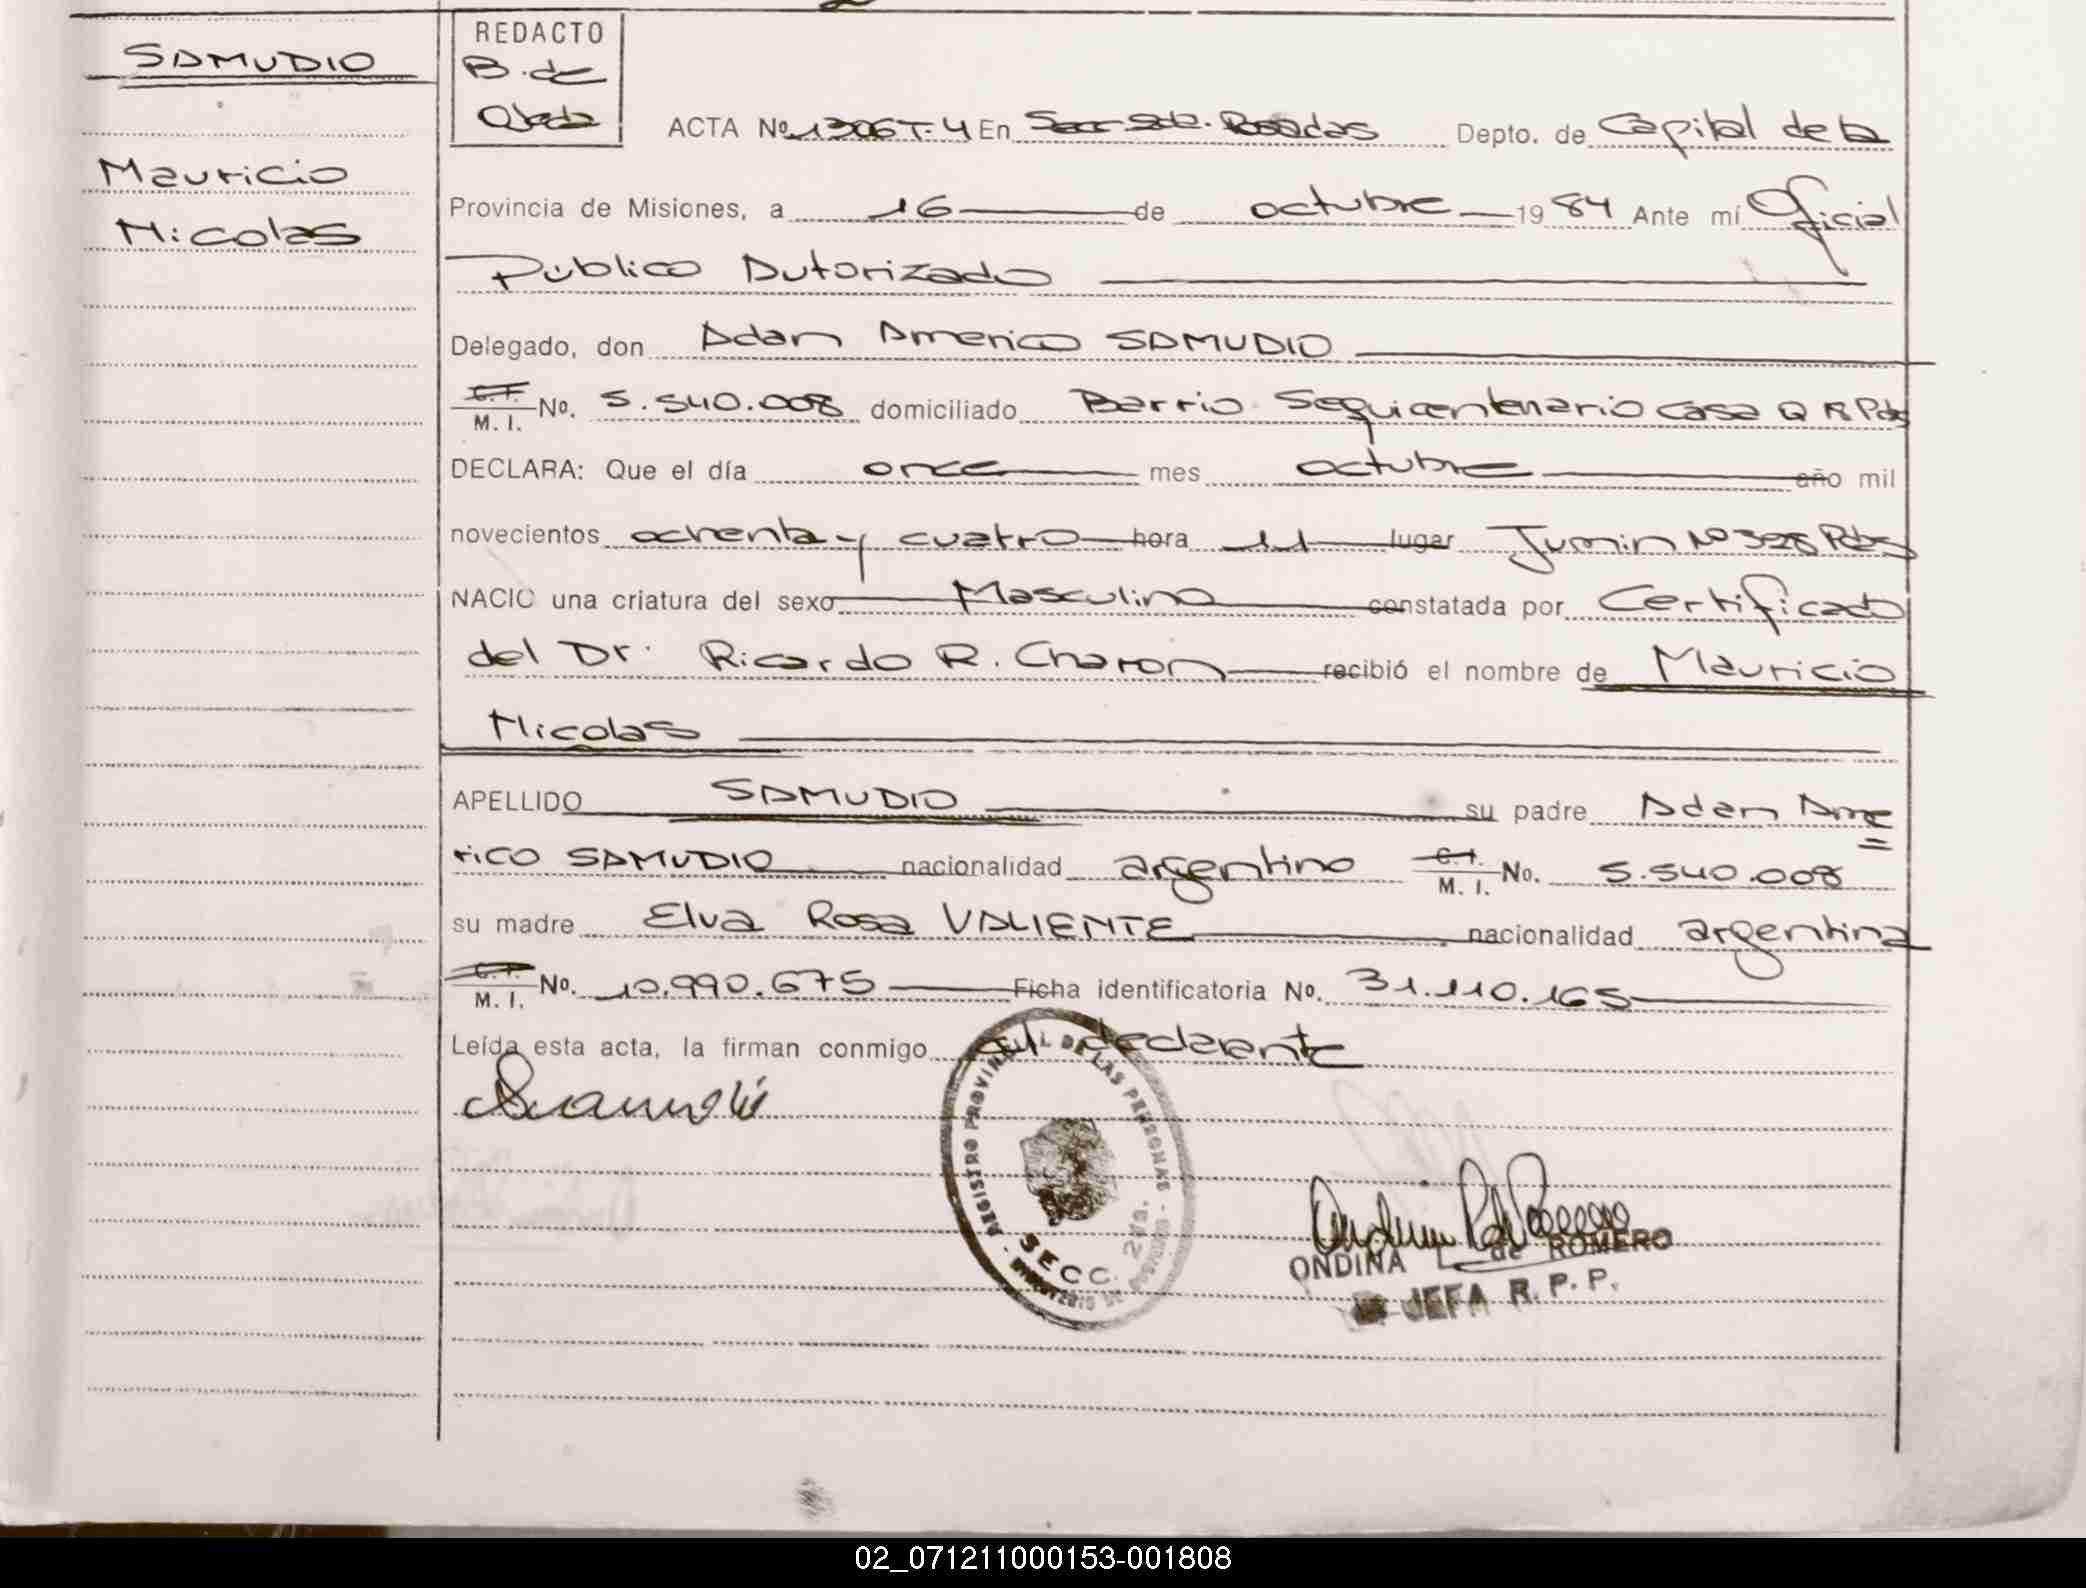 SAMUDIO
Mauricio
Nicolas
REDACTO
B. de
Ojeda
ACTA No. 1306 T. 4 En Secc 2da. Posadas Depto. de Capital de la
Provincia de Misiones, a 16 de octubre 1984 Ante mí Oficial
Público Autorizado
Delegado, don Adan Americo SAMUDIO
C. I. M. I. No. 5.540.008 domiciliado Barrio Sequicentenario casa Q Pdas
DECLARA: Que el día once mes octubre año mil
novecientos ochenta y cuatro hora 11 lugar Junin Nº 328 Pdas
NACIO una criatura del sexo Masculino constatada por Certificado
del Dr. Ricardo R. Charon recibió el nombre de Mauricio
Nicolas
APELLIDO SAMUDIO su padre Adan Ame=
rico SAMUDIO nacionalidad argentino C. I. M. I. No. 5.540.008
su madre Elva Rosa VALIENTE nacionalidad argentina
C. I. M. I. No. 10.990.675 Ficha identificatoria No. 31.110.165
Leída esta acta, la firman conmigo el declarante
REGISTRO PROVINCIAL DE LAS PERSONAS
SECC. 2da.
ONDINA de ROMERO
JEFA R. P. P.
02_071211000153-001808